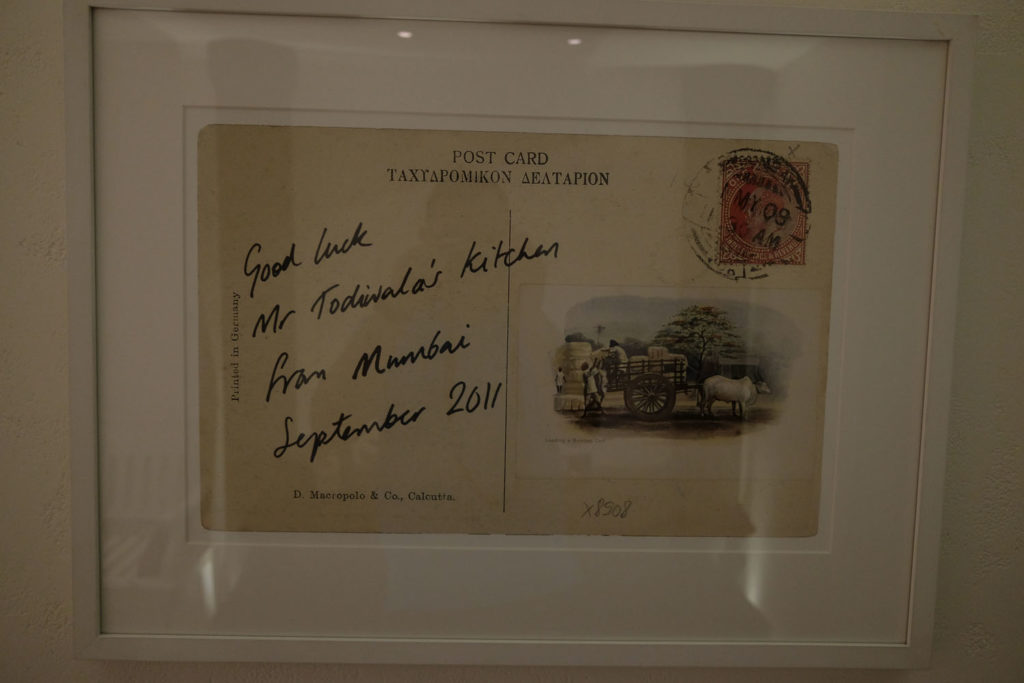 POST CARD
ΤΑΧΥΔΡΟΜΙΚΟΝ ΔΕΛΤΑΡΙΟΝ
MY 09
AM
Good luck
Mr Todiwala's Kitchen
from Mumbai
September 2011
Printed in Germany
Loading a Bombay Cart
D. Macropolo & Co., Calcutta.
X8908